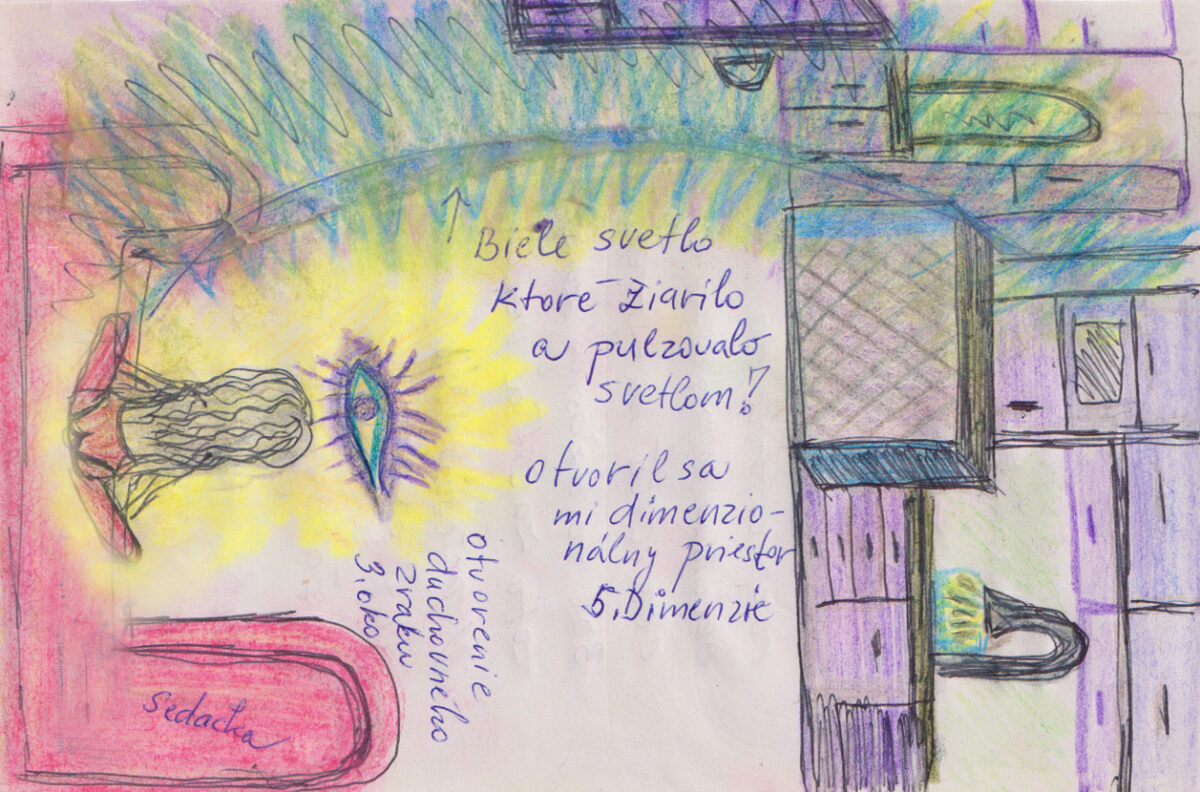 Biele svetlo
ktoré žiarilo
a pulzovalo
svetlom!
otvoril sa
mi dimenzio-
nálny priestor
5. Dimenzie
otvorenie
duchovného
zraku
3. oko
Sedačka